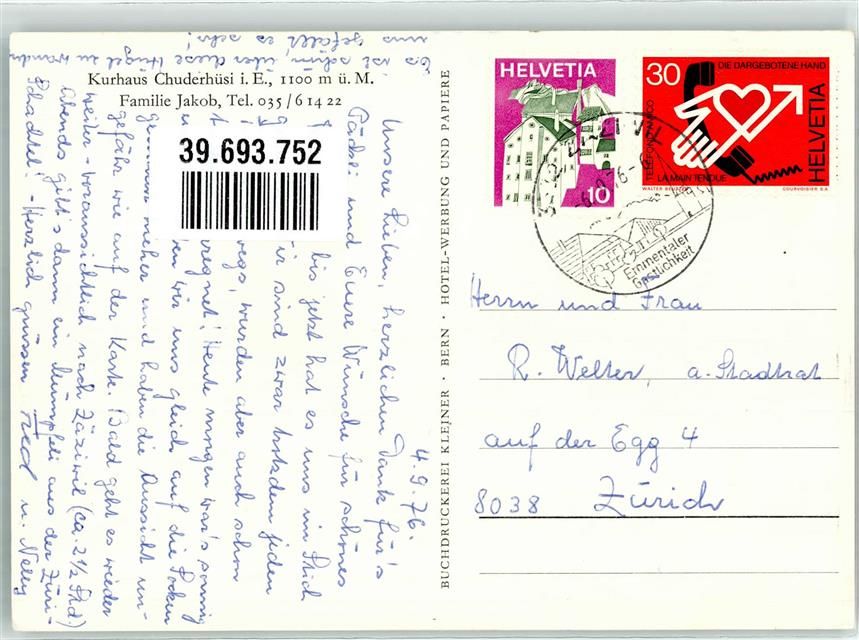 Kurhaus Chuderhüsi i. E., 1100 m ü. M.
Familie Jakob, Tel. 035 / 6 14 22
39.693.752
4.9.76.
Unsere Lieben, herzlichen Dank für's
Päckli und Euere Wünsche für schönes
bis jetzt hat es uns im Stich
sind zwar trotzdem jeden
wegs, wurden aber auch schon
regnet! Heute morgen war's sonnig
wir uns gleich auf die Socken
gemacht und haben die Aussicht un-
gefähr wie auf der Karte. Bald geht es wieder
weiter - voraussichtlich nach Zäziwil (ca. 2½ Std.)
Abends gibt's dann ein Mümpfeli aus der Züri-
Schachtel! - Herzlich grüssen Fred u. Nelly
Es ist schön über diese Hügel zu wandern
uns gefällt es sehr!
BUCHDRUCKEREI KLEJNER · BERN · HOTEL-WERBUNG UND PAPIERE
HELVETIA
10
30
DIE DARGEBOTENE HAND
TELEFONO AMICO
LA MAIN TENDUE
HELVETIA
COURVOISIER S.A.
Emmentaler
Gastlichkeit
Herrn und Frau
R. Welter, a. Stadtrat
auf der Egg 4
8038 Zürich